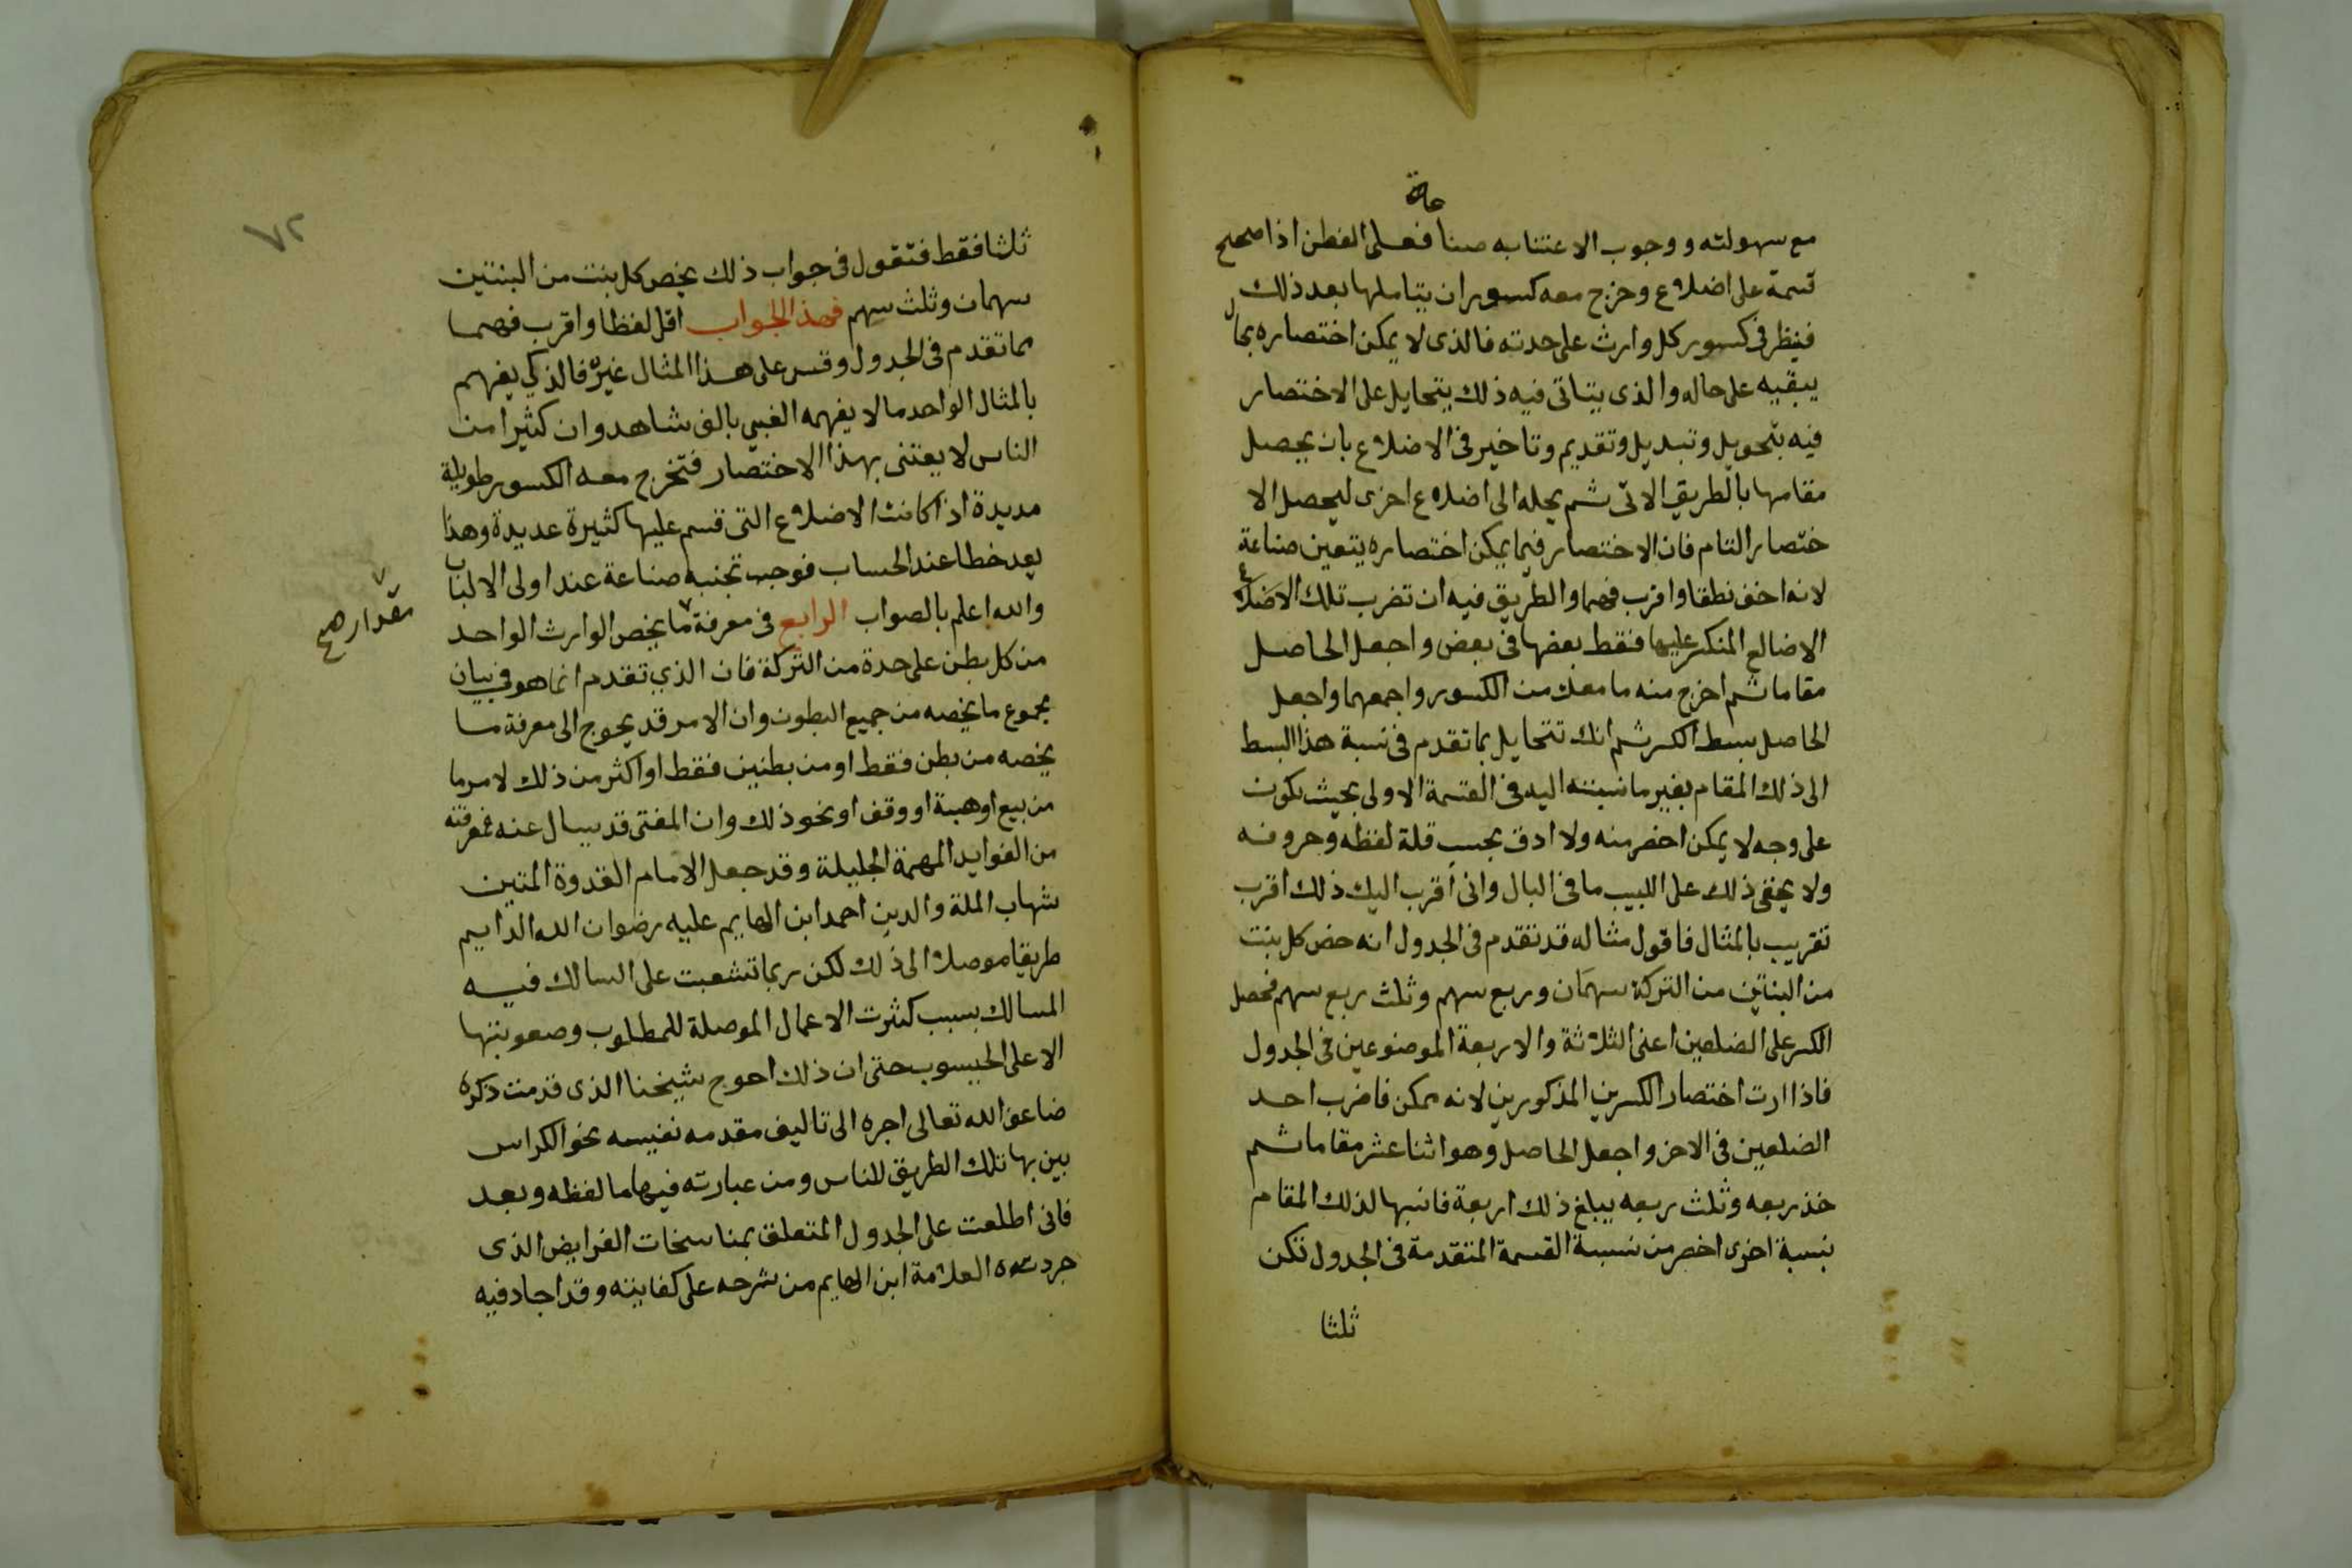 مع سهولته ووجوب الاعتنابه صناعة فعلى الفطن اذا صحح
قسمة على اضلاع وخرج معه كسور ان يتاملها بعد ذلك
فينظر فى كسور كل وارث على حدته فالذى لا يمكن اختصاره بحال
يبقيه على حاله والذى يتاتى فيه ذلك يتحايل على الاختصار
فيه بتحويل وتبديل وتقديم وتاخير فى الاضلاع بان يحصل
مقامها بالطريق الاتى ثم يحله الى اضلاع اخرى ليحصل الا
ختصار التام فان الاختصار فيما يمكن اختصاره يتعين صناعة
لانه اخف نطقا واقرب فهما والطريق فيه ان تضرب تلك الاضلاع
الاضالع المنكسر عليها فقط بعضها فى بعض واجعل الحاصل
مقاما ثم اخرج منه ما معك من الكسور واجمعهما واجعل
الحاصل بسط الكسر ثم انك تتحايل بما تقدم فى نسبة هذا البسط
الى ذلك المقام بغير ما نسبته اليه فى القسمة الاولى بحيث يكون
على وجه لا يمكن اخصر منه ولا ادق بحسب قلة لفظه وحروفه
ولا يخفى ذلك على اللبيب ما فى البال وانى اقرب اليك ذلك اقرب
تقريب بالمثال فاقول مثاله قد تقدم فى الجدول انه خص كل بنت
من البنتين من التركة سهمان وربع سهم وثلث ربع سهم فحصل
الكسر على الضلعين اعنى الثلاثة والاربعة الموضوعين فى الجدول
فاذا اردت اختصار الكسرين المذكورين لانه ممكن فاضرب احد
الضلعين فى الاخر واجعل الحاصل وهو اثنا عشر مقاما ثم
خذ ربعه وثلث ربعه يبلغ ذلك اربعة فانسبها لذلك المقام
نسبة اخرى اخصر من نسبة القسمة المتقدمة فى الجدول تكن
ثلثا
٧٢
ثلثا فقط فتقول فى جواب ذلك يخص كل بنت من البنتين
سهمان وثلث سهم فهذا الجواب اقل لفظا واقرب فهما
مما تقدم فى الجدول وقس على هذا المثال غيره فالذكي يفهم
بالمثال الواحد ما لا يفهمه الغبي بالف شاهد وان كثيرا من
الناس لا يعتنى بهذا الاختصار فتخرج معه الكسور طويلة
مديدة اذا كانت الاضلاع التى قسم عليها كثيرة عديدة وهذا
يعد خطا عند الحساب فوجب تجنبه صناعة عند اولى الالباب
والله اعلم بالصواب الرابع فى معرفة ما يخص الوارث الواحد
مقدار صح
من كل بطن على حدة من التركة فان الذي تقدم انما هو فى بيان
مجموع ما يخصه من جميع البطون وان الامر قد يحوج الى معرفة ما
يخصه من بطن فقط او من بطنين فقط او اكثر من ذلك لامر ما
من بيع او هبة او وقف او نحو ذلك وان المفتى قد يسال عنه فمعرفته
من الفوايد المهمة الجليلة وقد جعل الامام القدوة المتين
شهاب الملة والدين احمد ابن الهايم عليه رضوان الله الدايم
طريقا موصلا الى ذلك لكن ربما تشعبت على السالك فيه
المسالك بسبب كثرت الاعمال الموصلة للمطلوب وصعوبتها
الا على الحيسوب حتى ان ذلك احوج شيخنا الذى قدمت ذكره
ضاعف الله تعالى اجره الى تاليف مقدمه نفيسه نحو الكراس
بين بها تلك الطريق للناس ومن عبارته فيها ما لفظه وبعد
فانى اطلعت على الجدول المتعلق بمناسخات الفرايض الذى
جرده العلامة ابن الهايم من شرحه على كفايته وقد اجاد فيه